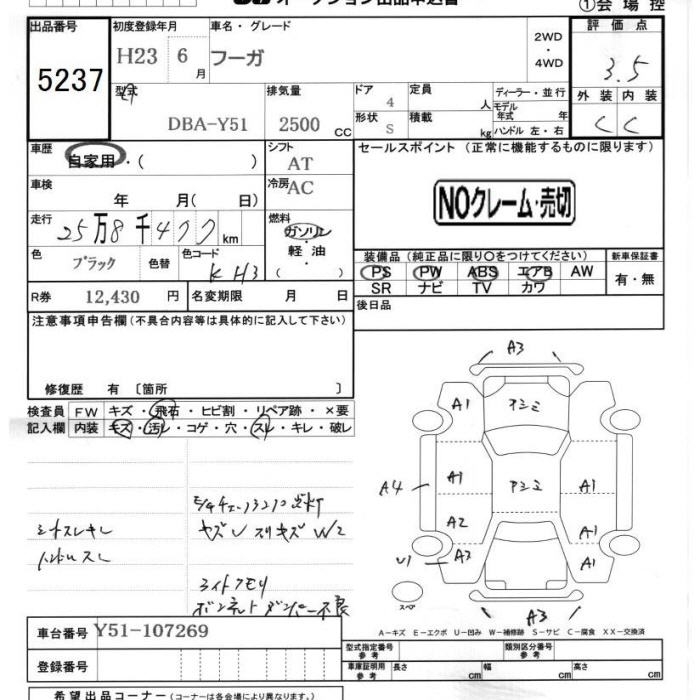 オークション出品申込書
①会場控
出品番号
5237
初度登録年月
H23 6月
車名・グレード
フーガ
2WD
・
4WD
評価点
3.5
外装 内装
C C
型式
DBA-Y51
排気量
2500 CC
ドア
4
形状
S
定員
人
積載
kg
ディーラー・並行
モデル年式 年
ハンドル 左・右
車歴
自家用・( )
シフト
AT
冷房
AC
セールスポイント (正常に機能するものに限ります)
NOクレーム・売切
車検
年 月( 日)
走行
25万8千400km
燃料
ガソリン
軽油
( ・ )
色
ブラック
色替
色コード
KH3
装備品(純正品に限り○をつけてください)
新車保証書
PS PW ABS エアB AW
SR ナビ TV カワ
有・無
R券 12,430 円
名変期限 月 日
後日品
注意事項申告欄(不具合内容等は具体的に記入して下さい)
修復歴 有〔箇所 〕
検査員記入欄
FW キズ・飛石・ヒビ割・リペア跡・×要
内装 キズ・汚れ・コゲ・穴・スレ・キレ・破レ
シートスレキレ
ハンドルスレ
キズU スリキズ W2
ライトクモリ
ボンネットダンパー不良
A3
A1
アシミ
A4
A1
アシミ
A1
A2
A1
U1
A3
A1
スペア
A3
A-キズ E-エクボ U-凹み W-補修跡 S-サビ C-腐食 XX-交換済
車台番号 Y51-107269
登録番号
型式指定番号 参考
類別区分番号 参考
車庫証明用 参考
長さ cm 幅 cm 高さ cm
希望出品コーナー(コーナーは各会場により異なります。)